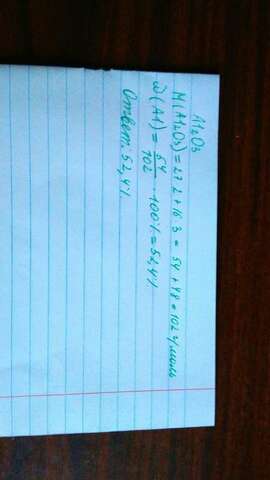 Al₂O₃
M(Al₂O₃)=27·2+16·3= 54+48=102 г/моль
ω(Al)= 54/102 · 100%=52,4%
Ответ: 52,4%